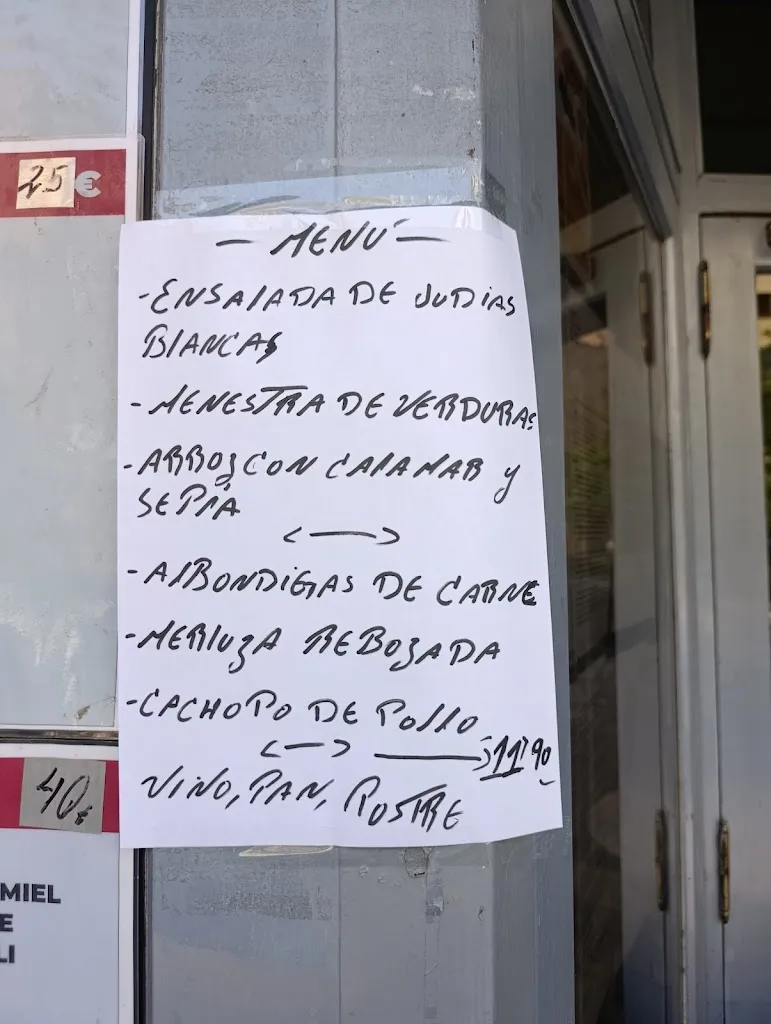 25 €
— MENÚ —
- ENSALADA DE JUDIAS
BLANCAS
- MENESTRA DE VERDURAS
- ARROZ CON CALAMAR y
SEPIA
- ALBONDIGAS DE CARNE
- MERLUZA REBOZADA
- CACHOPO DE POLLO
11'90
VINO, PAN, POSTRE
40€
MIEL
E
LI